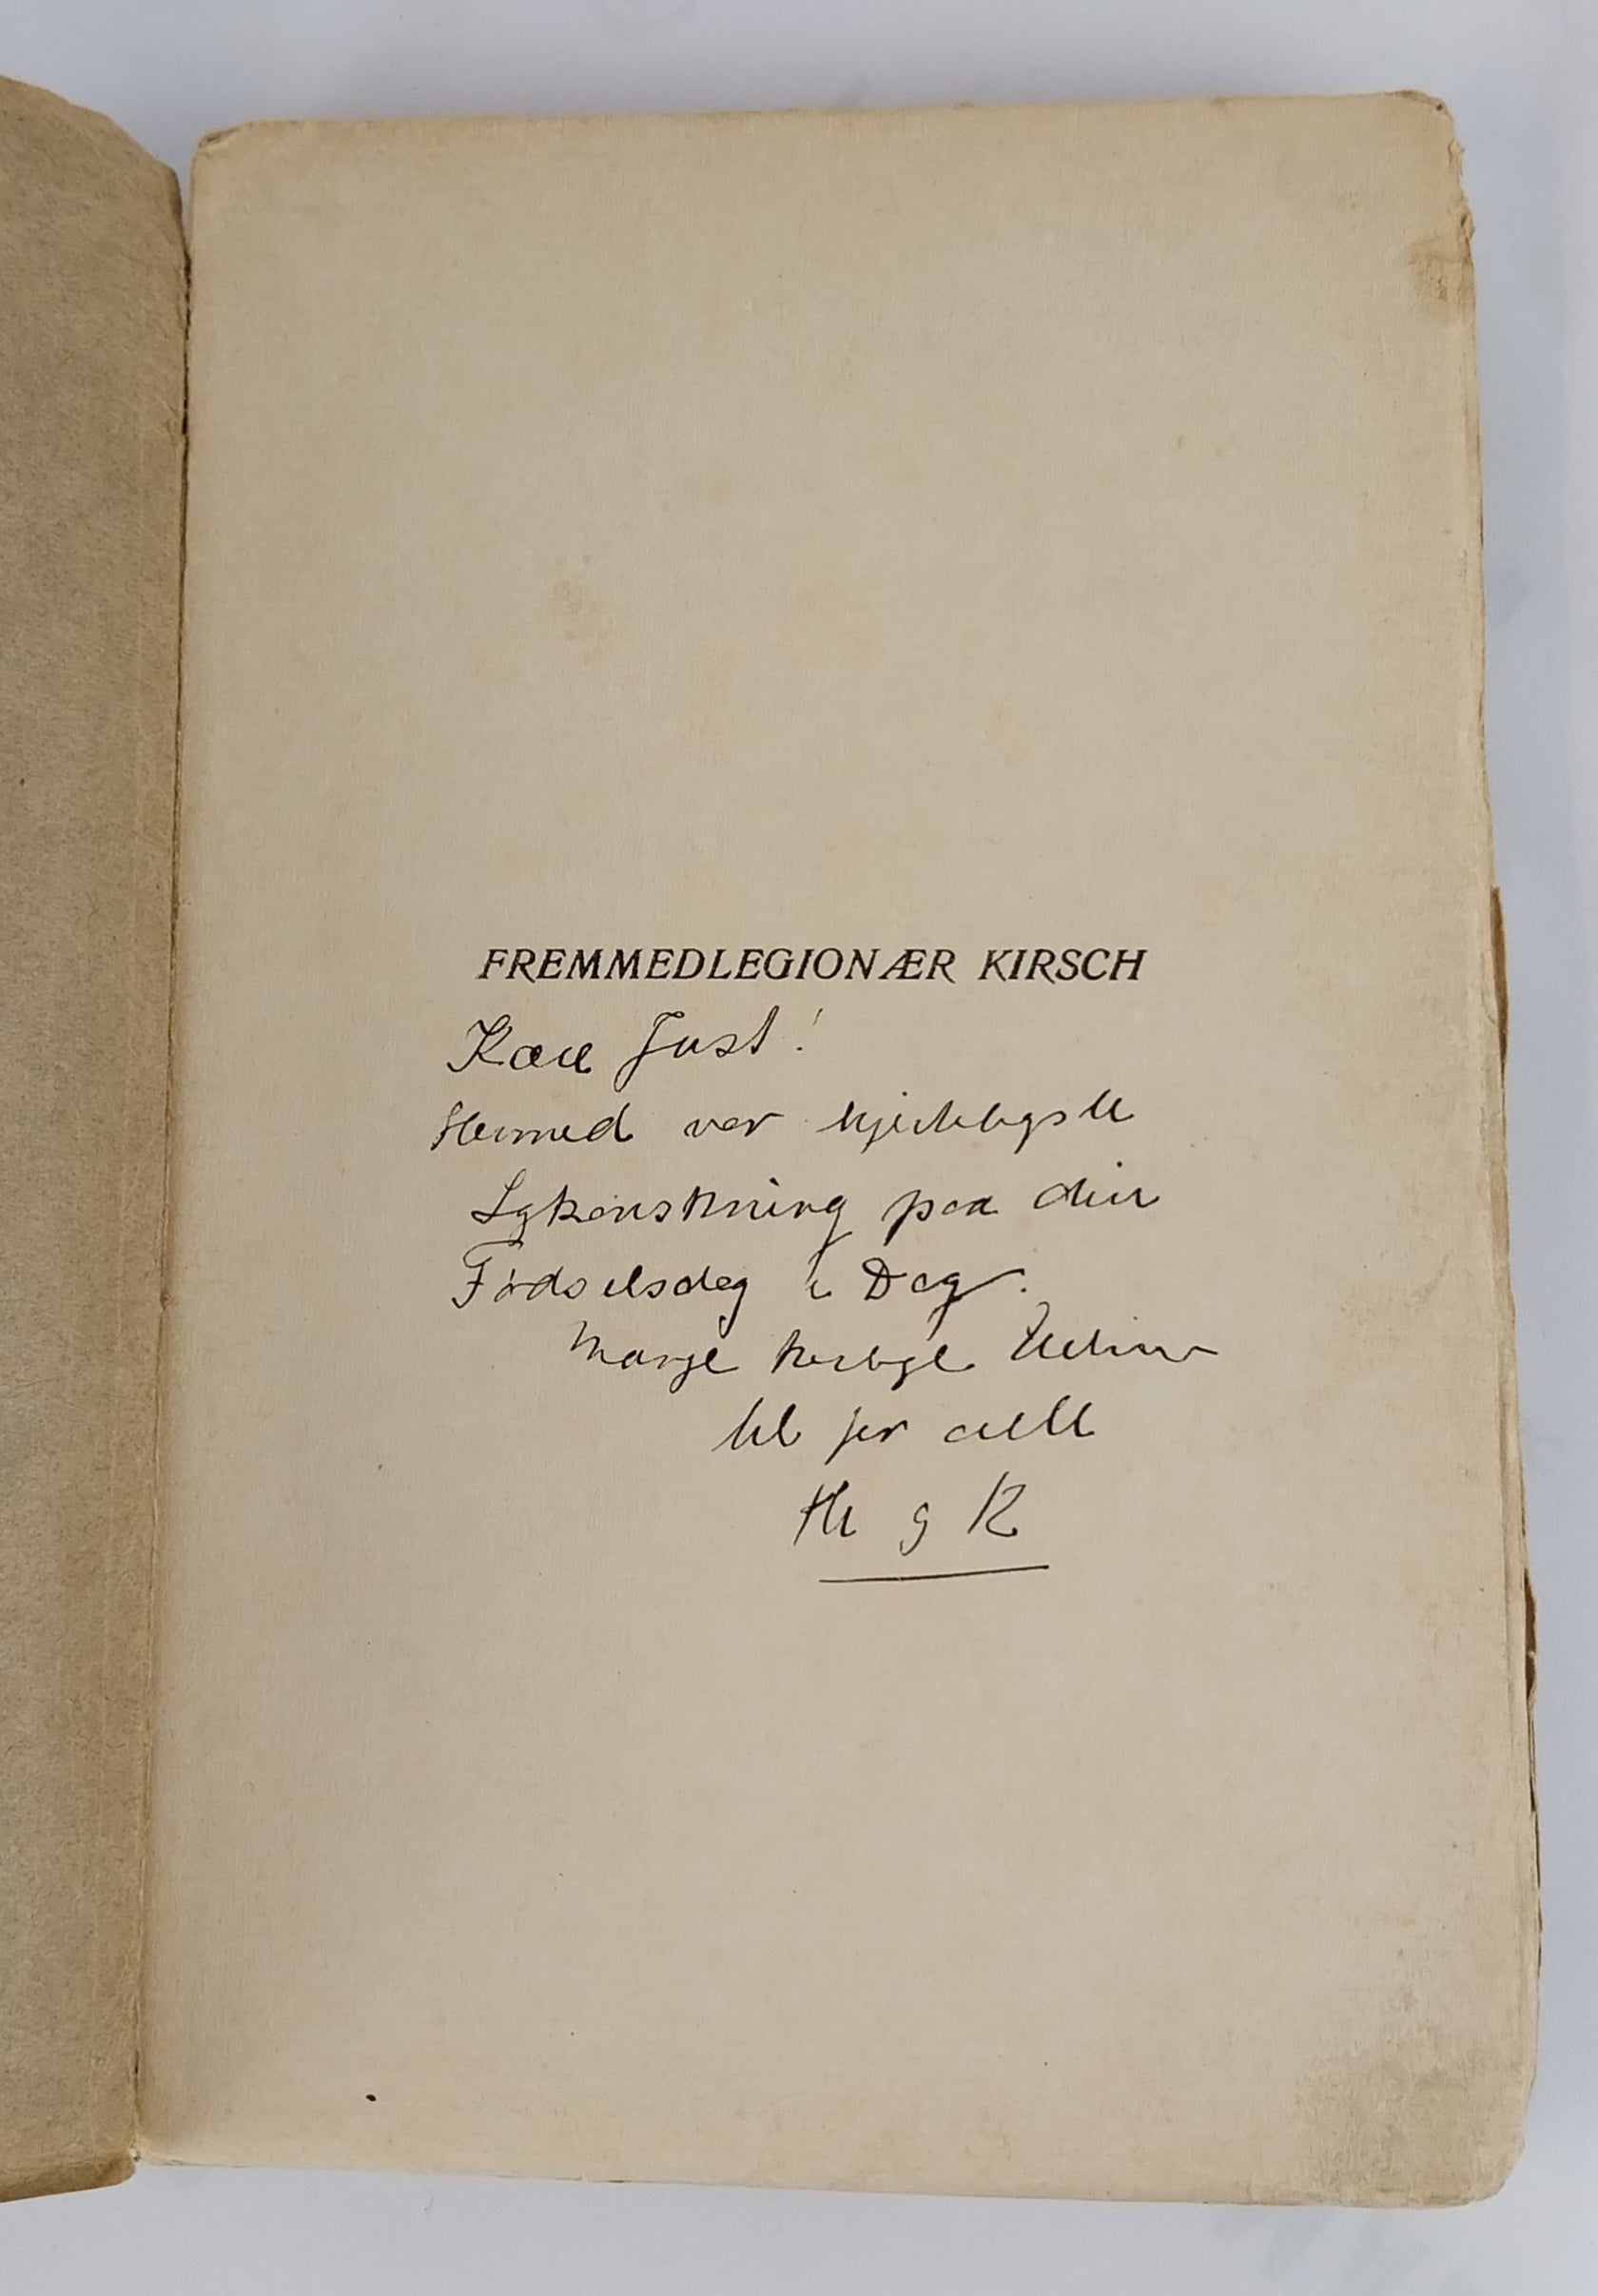 FREMMEDLEGIONÆR KIRSCH
Kære Just!
Hermed vor hjerteligste
Lykønskning paa din
Fødselsdag i Dag.
Mange kærlige Hilsner
til jer alle
K